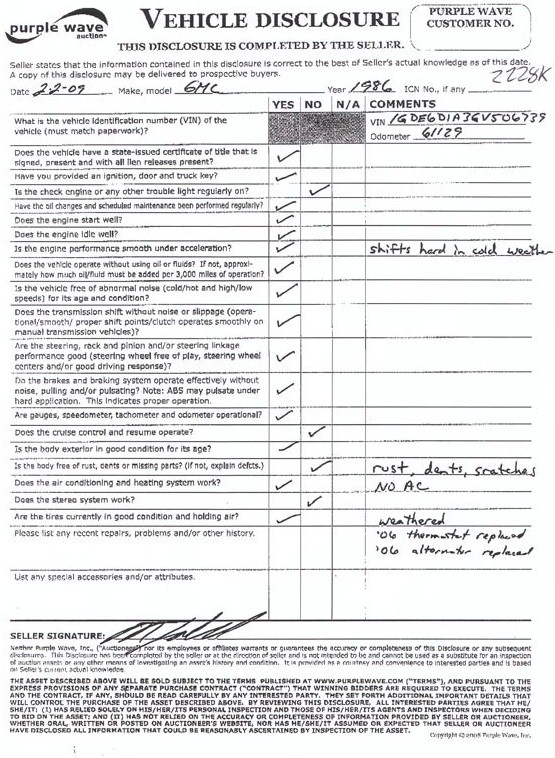 purple wave
auction
VEHICLE DISCLOSURE
PURPLE WAVE
CUSTOMER NO.
THIS DISCLOSURE IS COMPLETED BY THE SELLER.
Seller states that the information contained in this disclosure is correct to the best of Seller's actual knowledge as of this date.
A copy of this disclosure may be delivered to prospective buyers.
2228K
Date 2-2-09 Make, model GMC Year 1986 ICN No., if any
YES NO N/A COMMENTS
What is the vehicle identification number (VIN) of the
vehicle (must match paperwork)?
VIN 1GDE6D1A3GV506739
Odometer 61129
Does the vehicle have a state-issued certificate of title that is
signed, present and with all lien releases present?
Have you provided an ignition, door and truck key?
Is the check engine or any other trouble light regularly on?
Have the oil changes and scheduled maintenance been performed regularly?
Does the engine start well?
Does the engine idle well?
Is the engine performance smooth under acceleration?
shifts hard in cold weather
Does the vehicle operate without using oil or fluids? If not, approxi-
mately how much oil/fluid must be added per 3,000 miles of operation?
Is the vehicle free of abnormal noise (cold/hot and high/low
speeds) for its age and condition?
Does the transmission shift without noise or slippage (opera-
tional/smooth/ proper shift points/clutch operates smoothly on
manual transmission vehicles)?
Are the steering, rack and pinion and/or steering linkage
performance good (steering wheel free of play, steering wheel
centers and/or good driving response)?
Do the brakes and braking system operate effectively without
noise, pulling and/or pulsating? Note: ABS may pulsate under
hard application. This indicates proper operation.
Are gauges, speedometer, tachometer and odometer operational?
Does the cruise control and resume operate?
Is the body exterior in good condition for its age?
Is the body free of rust, dents or missing parts? (if not, explain defcts.)
rust, dents, sratches
Does the air conditioning and heating system work?
NO AC
Does the stereo system work?
Are the tires currently in good condition and holding air?
weathered
Please list any recent repairs, problems and/or other history.
'06 thermostat replaced
'06 alternator replaced
List any special accessories and/or attributes.
SELLER SIGNATURE:
Neither Purple Wave, Inc., ("Auctioneer") nor its employees or affiliates warrants or guarantees the accuracy or completeness of this Disclosure or any subsequent
disclosures. This Disclosure has been completed by the seller or at the direction of seller and is not intended to be and cannot be used as a substitute for an inspection
of auction assets or any other means of investigating an asset's history and condition. It is provided as a courtesy and convenience to interested parties and is based
on Seller's current actual knowledge.
THE ASSET DESCRIBED ABOVE WILL BE SOLD SUBJECT TO THE TERMS PUBLISHED AT WWW.PURPLEWAVE.COM ("TERMS"), AND PURSUANT TO THE
EXPRESS PROVISIONS OF ANY SEPARATE PURCHASE CONTRACT ("CONTRACT") THAT WINNING BIDDERS ARE REQUIRED TO EXECUTE. THE TERMS
AND THE CONTRACT, IF ANY, SHOULD BE READ CAREFULLY BY ANY INTERESTED PARTY. THEY SET FORTH ADDITIONAL IMPORTANT DETAILS THAT
WILL CONTROL THE PURCHASE OF THE ASSET DESCRIBED ABOVE. BY REVIEWING THIS DISCLOSURE, ALL INTERESTED PARTIES AGREE THAT HE/
SHE/IT: (I) HAS RELIED SOLELY ON HIS/HER/ITS PERSONAL INSPECTION AND THOSE OF HIS/HER/ITS AGENTS AND INSPECTORS WHEN DECIDING
TO BID ON THE ASSET; AND (II) HAS NOT RELIED ON THE ACCURACY OR COMPLETENESS OF INFORMATION PROVIDED BY SELLER OR AUCTIONEER,
WHETHER ORAL, WRITTEN OR POSTED ON AUCTIONEER'S WEBSITE, NOR HAS HE/SHE/IT ASSUMED OR EXPECTED THAT SELLER OR AUCTIONEER
HAVE DISCLOSED ALL INFORMATION THAT COULD BE REASONABLY ASCERTAINED BY INSPECTION OF THE ASSET.
Copyright ©2008 Purple Wave, Inc.